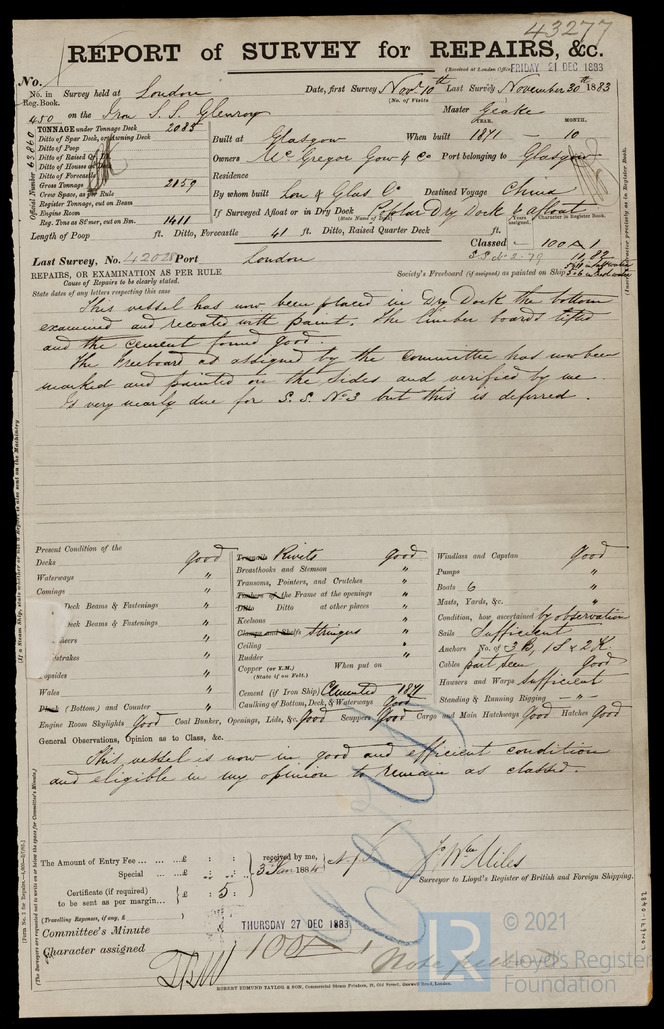 43277
REPORT of SURVEY for REPAIRS, &c.
(Received at London Office FRIDAY 21 DEC 1883
No.
No. in Reg. Book. Survey held at London Date, first Survey Nov. 10th Last Survey November 30th 1883
(No. of Visits)
450 on the Iron S.S. Glenroy Master Geake
TONNAGE under Tonnage Deck 2085
Ditto of Spar Deck, or Awning Deck
Ditto of Poop
Ditto of Raised Qr. Dk.
Ditto of Houses on Deck
Ditto of Forecastle
Gross Tonnage 2159
Crew Space, as per Rule
Register Tonnage, cut on Beam
Engine Room
Reg. Tons as St'mer, cut on Bm. 1411
Official Number 63860
YEAR. MONTH.
Built at Glasgow When built 1871 10
Owners McGregor Gow & Co Port belonging to Glasgow
Residence
By whom built Lon & Glas Co Destined Voyage China
If Surveyed Afloat or in Dry Dock Poplar Dry Dock & afloat
(State Name of Dock)
Years assigned. Character in Register Book.
(Insert Character precisely as in Register Book.
Length of Poop ft. Ditto, Forecastle 41 ft. Ditto, Raised Quarter Deck ft.
Classed 100 A 1
S.S. No 2-79 11,82
Last Survey, No. 42028 Port London
REPAIRS, OR EXAMINATION AS PER RULE
Society's Freeboard (if assigned) as painted on Ship
Cause of Repairs to be clearly stated.
State dates of any letters respecting this case
This vessel has now been placed in Dry Dock the bottom
examined and recoated with paint. The limber boards lifted
and the cement found good
The Freeboard as assigned by the committee has now been
marked and painted on the sides and verified by me
Is very nearly due for S.S. No 3 but this is deferred.
Present Condition of the
Decks good
Waterways "
Comings "
Deck Beams & Fastenings "
Deck Beams & Fastenings "
Wales "
(Bottom) and Counter "
Engine Room Skylights Good Coal Bunker, Openings, Lids, &c. Good Scuppers Good Cargo and Main Hatchways Good Hatches Good
Rivets good
Breasthooks and Stemson "
Transoms, Pointers, and Crutches "
Timbers of the Frame at the openings "
Ditto Ditto at other places "
Keelsons "
Clamps and Shelfs Stringers "
Ceiling "
Rudder "
Copper (or Y.M.) When put on
(State if on Felt.)
Cement (if Iron Ship) Cemented 1871
Caulking of Bottom, Deck, & Waterways Good
Windlass and Capstan good
Pumps "
Boats 6 "
Masts, Yards, &c. "
Condition, how ascertained by observation
Sails Sufficient
Anchors No. of 3 B, 1 S & 2 K
Cables part seen Good
Hawsers and Warps sufficient
Standing & Running Rigging — " —
General Observations, Opinion as to Class, &c.
This vessel is now in good and efficient condition
and eligible in my opinion to remain as classed.
The Amount of Entry Fee £ : : received by me,
Special £ : : 3 Jan 1884
Certificate (if required) to be sent as per margin £ : 5 :
Jo Wm Miles
Surveyor to Lloyd's Register of British and Foreign Shipping.
(Travelling Expenses, if any, £ )
Committee's Minute THURSDAY 27 DEC 1883
Character assigned 100 A 1
ROBERT EDMUND TAYLOR & SON, Commercial Steam Printers, 19, Old Street, Goswell Road, London.
LR
© 2021
Lloyd's Register
Foundation